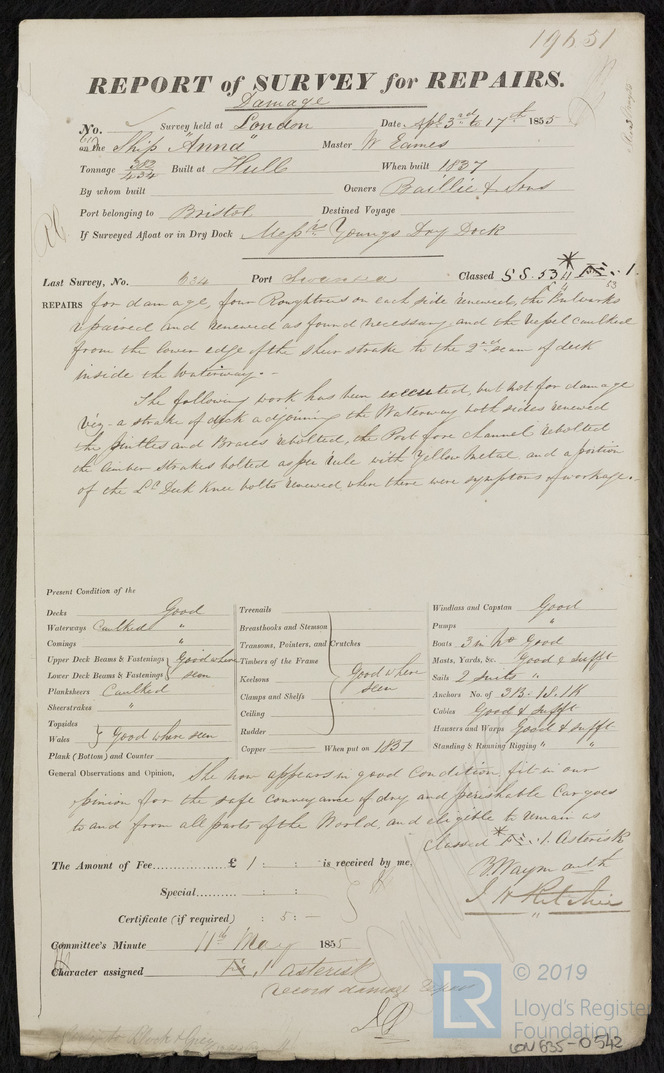 19651
REPORT of SURVEY for REPAIRS.
Damage
No. Survey held at London Date, Apl 3rd to 17th 1855
on the Ship "Anna" Master W Eames
Tonnage 383/434 Built at Hull When built 1837
By whom built Owners Baillie & Sons
Port belonging to Bristol Destined Voyage
If Surveyed Afloat or in Dry Dock Messrs Youngs Dry Dock
Last Survey, No. 634 Port Swansea Classed SS. 53 * Æ. 1.
53
REPAIRS for damage, four Roughtrees on each side renewed, the Bulwarks
repaired and renewed as found necessary and the Vessel caulked
from the lower edge of the sheer strake to the 2nd seam of deck
inside the Waterway.-
The following work has been executed, but not for damage
Viz - a strake of deck adjoining the Waterway both sides renewed
the Pintles and Braces rebolted, the Port fore channel rebolted
the limber strakes bolted as per rule with Yellow Metal, and a portion
of the Lr Deck Knee bolts renewed when there were symptoms of workage.-
Present Condition of the
Decks Good
Waterways Caulked "
Comings "
Upper Deck Beams & Fastenings } Good where
Lower Deck Beams & Fastenings } seen
Planksheers Caulked
Sheerstrakes "
Topsides
Wales } Good where seen
Plank (Bottom) and Counter
Treenails
Breasthooks and Stemson
Transoms, Pointers, and Crutches
Timbers of the Frame
Keelsons Good where
Clamps and Shelfs seen
Ceiling
Rudder
Copper When put on 1837
Windlass and Capstan Good
Pumps "
Boats 3 in No Good
Masts, Yards, &c. Good & Sufft
Sails 2 suits "
Anchors No. of 3B. 1S. 1K
Cables Good & sufft
Hausers and Warps Good & sufft
Standing & Running Rigging " "
General Observations and Opinion, She now appears in good Condition, fit in our
opinion for the safe conveyance of dry and perishable Cargoes
to and from all parts of the World and eligible to remain as
classed * Æ. 1. Asterisk
The Amount of Fee £ 1 : : is received by me,
Special : :
Certificate (if required) : 5 : -
B Waymouth
J H Ritchie
Committee's Minute 11th May 1855
Character assigned Æ 1 Asterisk
record damage repairs
© 2019
LR
Lloyd's Register
Foundation
LON 635-0542